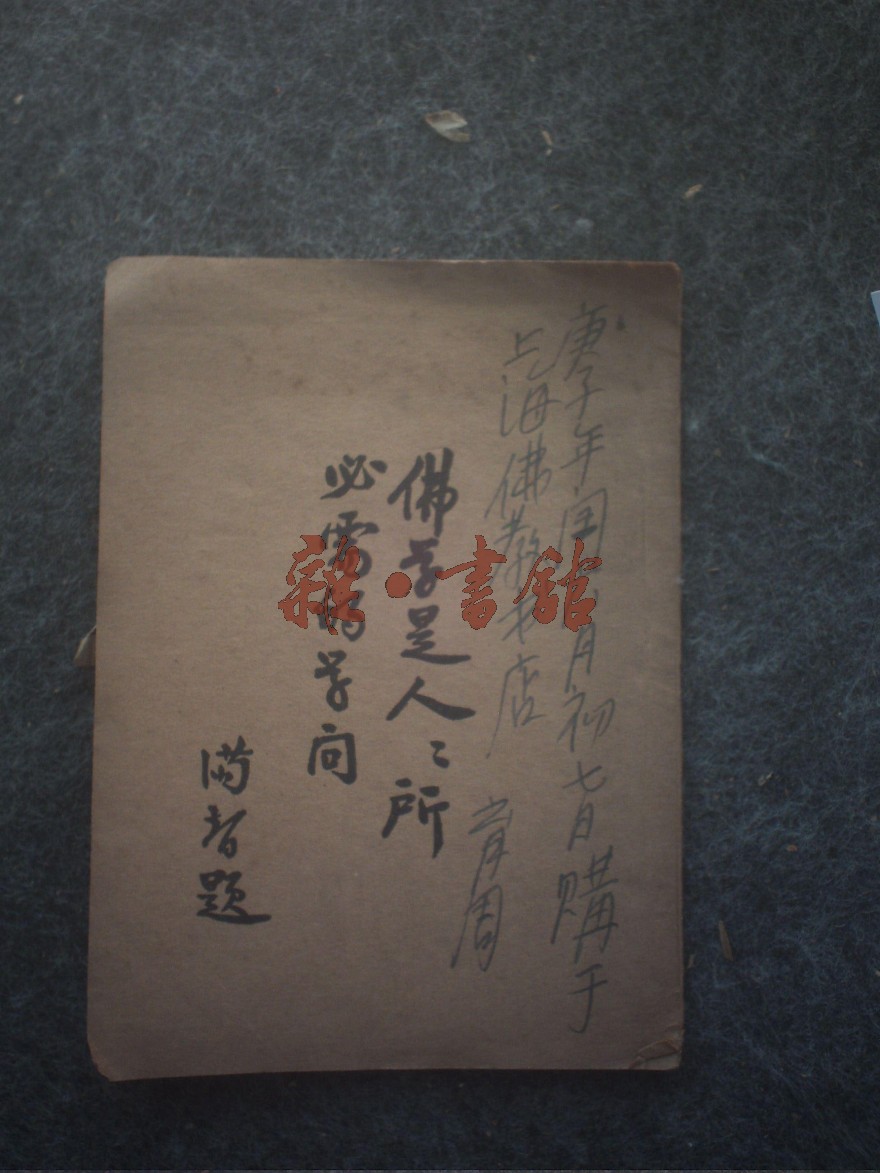 庚子年闰月初七日購于
上海佛教书店
周
佛学是人々所
必需的学问
满智题
雜·書館